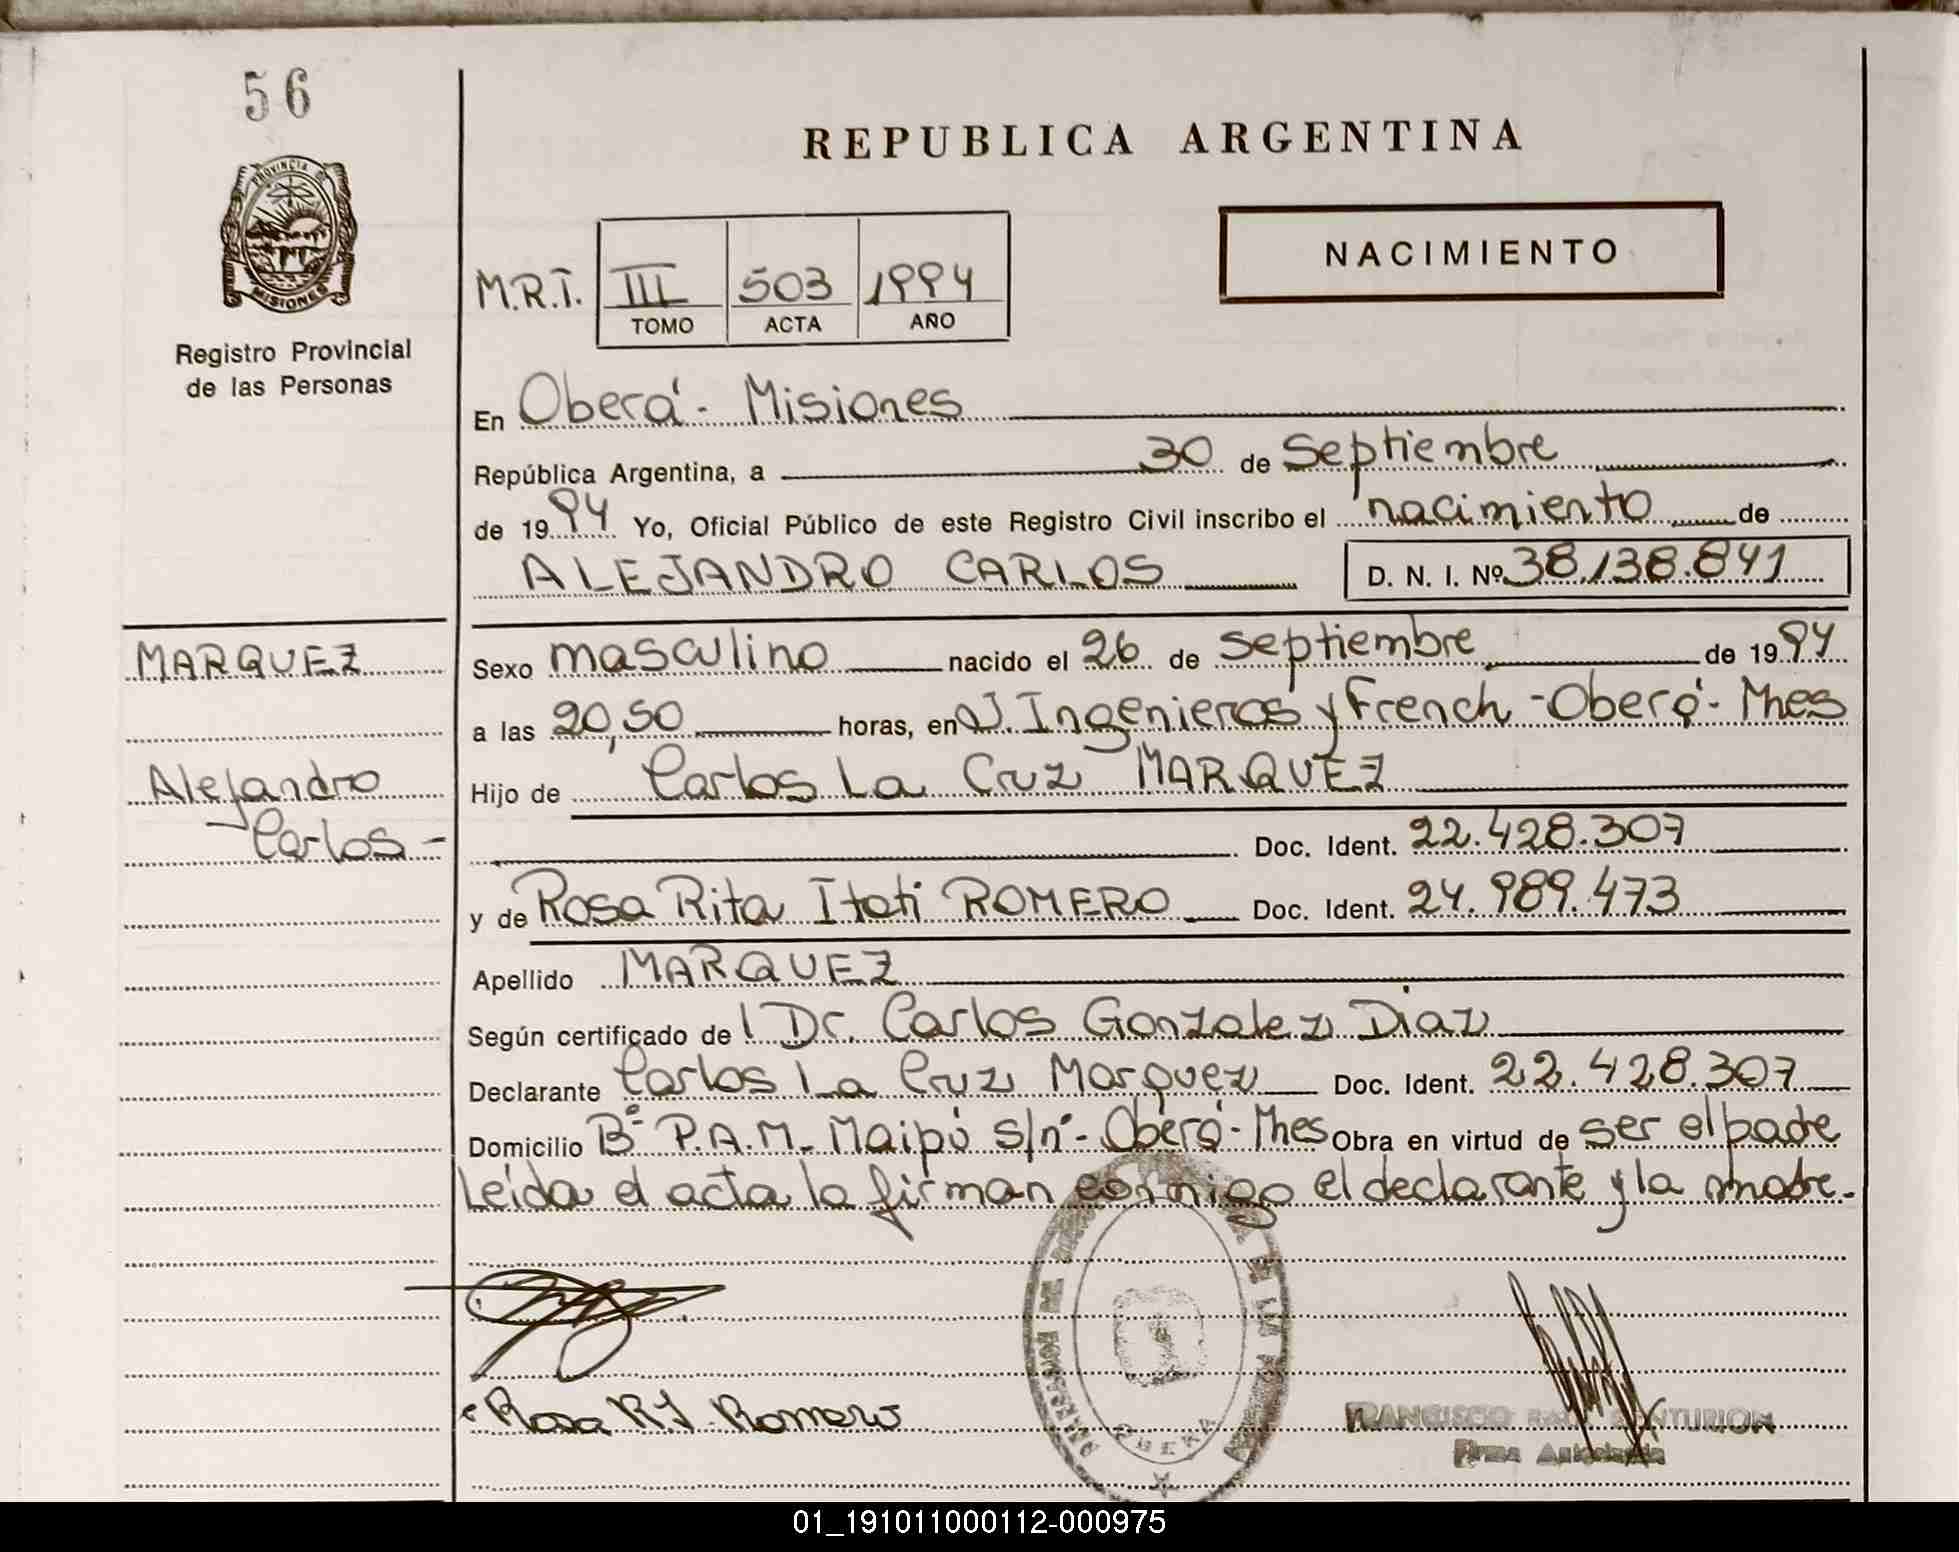 56
PROVINCIA DE
MISIONES
Registro Provincial
de las Personas
REPUBLICA ARGENTINA
NACIMIENTO
M.R.I. III 503 1994
TOMO ACTA AÑO
En Oberá - Misiones
República Argentina, a 30 de Septiembre
de 1994 Yo, Oficial Público de este Registro Civil inscribo el nacimiento de
ALEJANDRO CARLOS D. N. I. Nº 38.138.841
MARQUEZ
Alejandro
Carlos -
Sexo masculino nacido el 26 de septiembre de 1994
a las 20,50 horas, en J. Ingenieros y French - Oberá - Mnes
Hijo de Carlos La Cruz MARQUEZ
Doc. Ident. 22.428.307
y de Rosa Rita Itati ROMERO Doc. Ident. 24.989.473
Apellido MARQUEZ
Según certificado de l Dr. Carlos Gonzalez Diaz
Declarante Carlos La Cruz Marquez Doc. Ident. 22.428.307
Domicilio Bº P.A.M. Maipú s/nº - Oberá - Mnes Obra en virtud de ser el padre
Leída el acta la firman conmigo el declarante y la madre.
Rosa R I Romero
OBERA
FRANCISCO RAUL CENTURION
Firma Autorizada
01_191011000112-000975